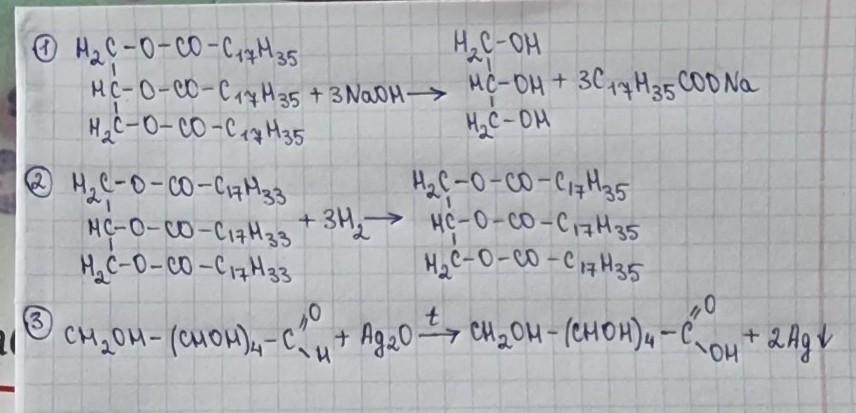 ① H₂C-O-CO-C₁₇H₃₅ H₂C-OH
HC-O-CO-C₁₇H₃₅ + 3NaOH → HC-OH + 3C₁₇H₃₅COONa
H₂C-O-CO-C₁₇H₃₅ H₂C-OH
② H₂C-O-CO-C₁₇H₃₃ H₂C-O-CO-C₁₇H₃₅
HC-O-CO-C₁₇H₃₃ + 3H₂ → HC-O-CO-C₁₇H₃₅
H₂C-O-CO-C₁₇H₃₃ H₂C-O-CO-C₁₇H₃₅
③ CH₂OH-(CHOH)₄-C=O\H + Ag₂O t→ CH₂OH-(CHOH)₄-C=O\OH + 2Ag↓